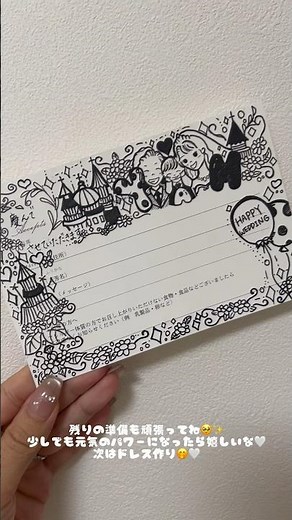 慶んで
させていただきます
（ご住所）
（ご芳名）
（メッセージ）
一体質の方でお召し上がりいただけない食物・食品などございましたら
お知らせください（例　乳製品・卵など）
HAPPY
WEDDING
残りの準備も頑張ってね🥹✨
少しでも元気のパワーになったら嬉しいな🤍
次はドレス作り🤭🤍